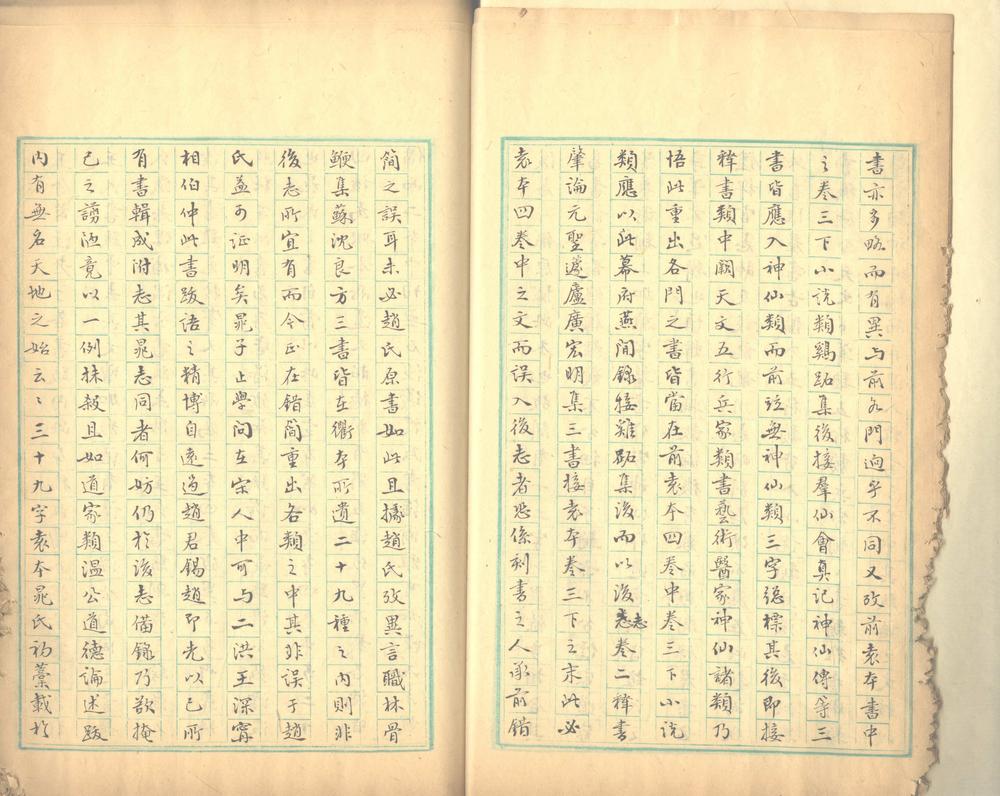 書亦多略而有異与前各門迥乎不同又攷前袁本書中
之卷三下小說類鷄跖集後接羣仙會真記神仙傳等三
書皆應入神仙類而前竝無神仙類三字標其後即接
釋書類中闕天文五行兵家類書藝術醫家神仙諸類乃
悟此重出各門之書皆當在前袁本四卷中卷三下小說
類應以此幕府燕閒錄接雞跖集後而以後志卷二釋書
肇論元聖蘧廬廣宏明集三書接袁本卷三下之末此必
袁本四卷中之文而誤入後志者恐係刻書之人承前錯
簡之誤耳未必趙氏原書如此且據趙氏攷異言職林骨
鯁集蘇沈良方三書皆在衢本所遺二十九種之內則非
後志所宜有而今正在錯簡重出各類之中其非誤于趙
氏益可證明矣晁子止學問在宋人中可与二洪王深寧
相伯仲此書跋語之精博自遠過趙君錫趙即先以己所
有書輯成附志其晁志同者何妨仍於後志備錄乃欲掩
己之謭陋竟以一例抹殺且如道家類溫公道德論述跋
內有無名天地之始云〻三十九字袁本晁氏初藁載於